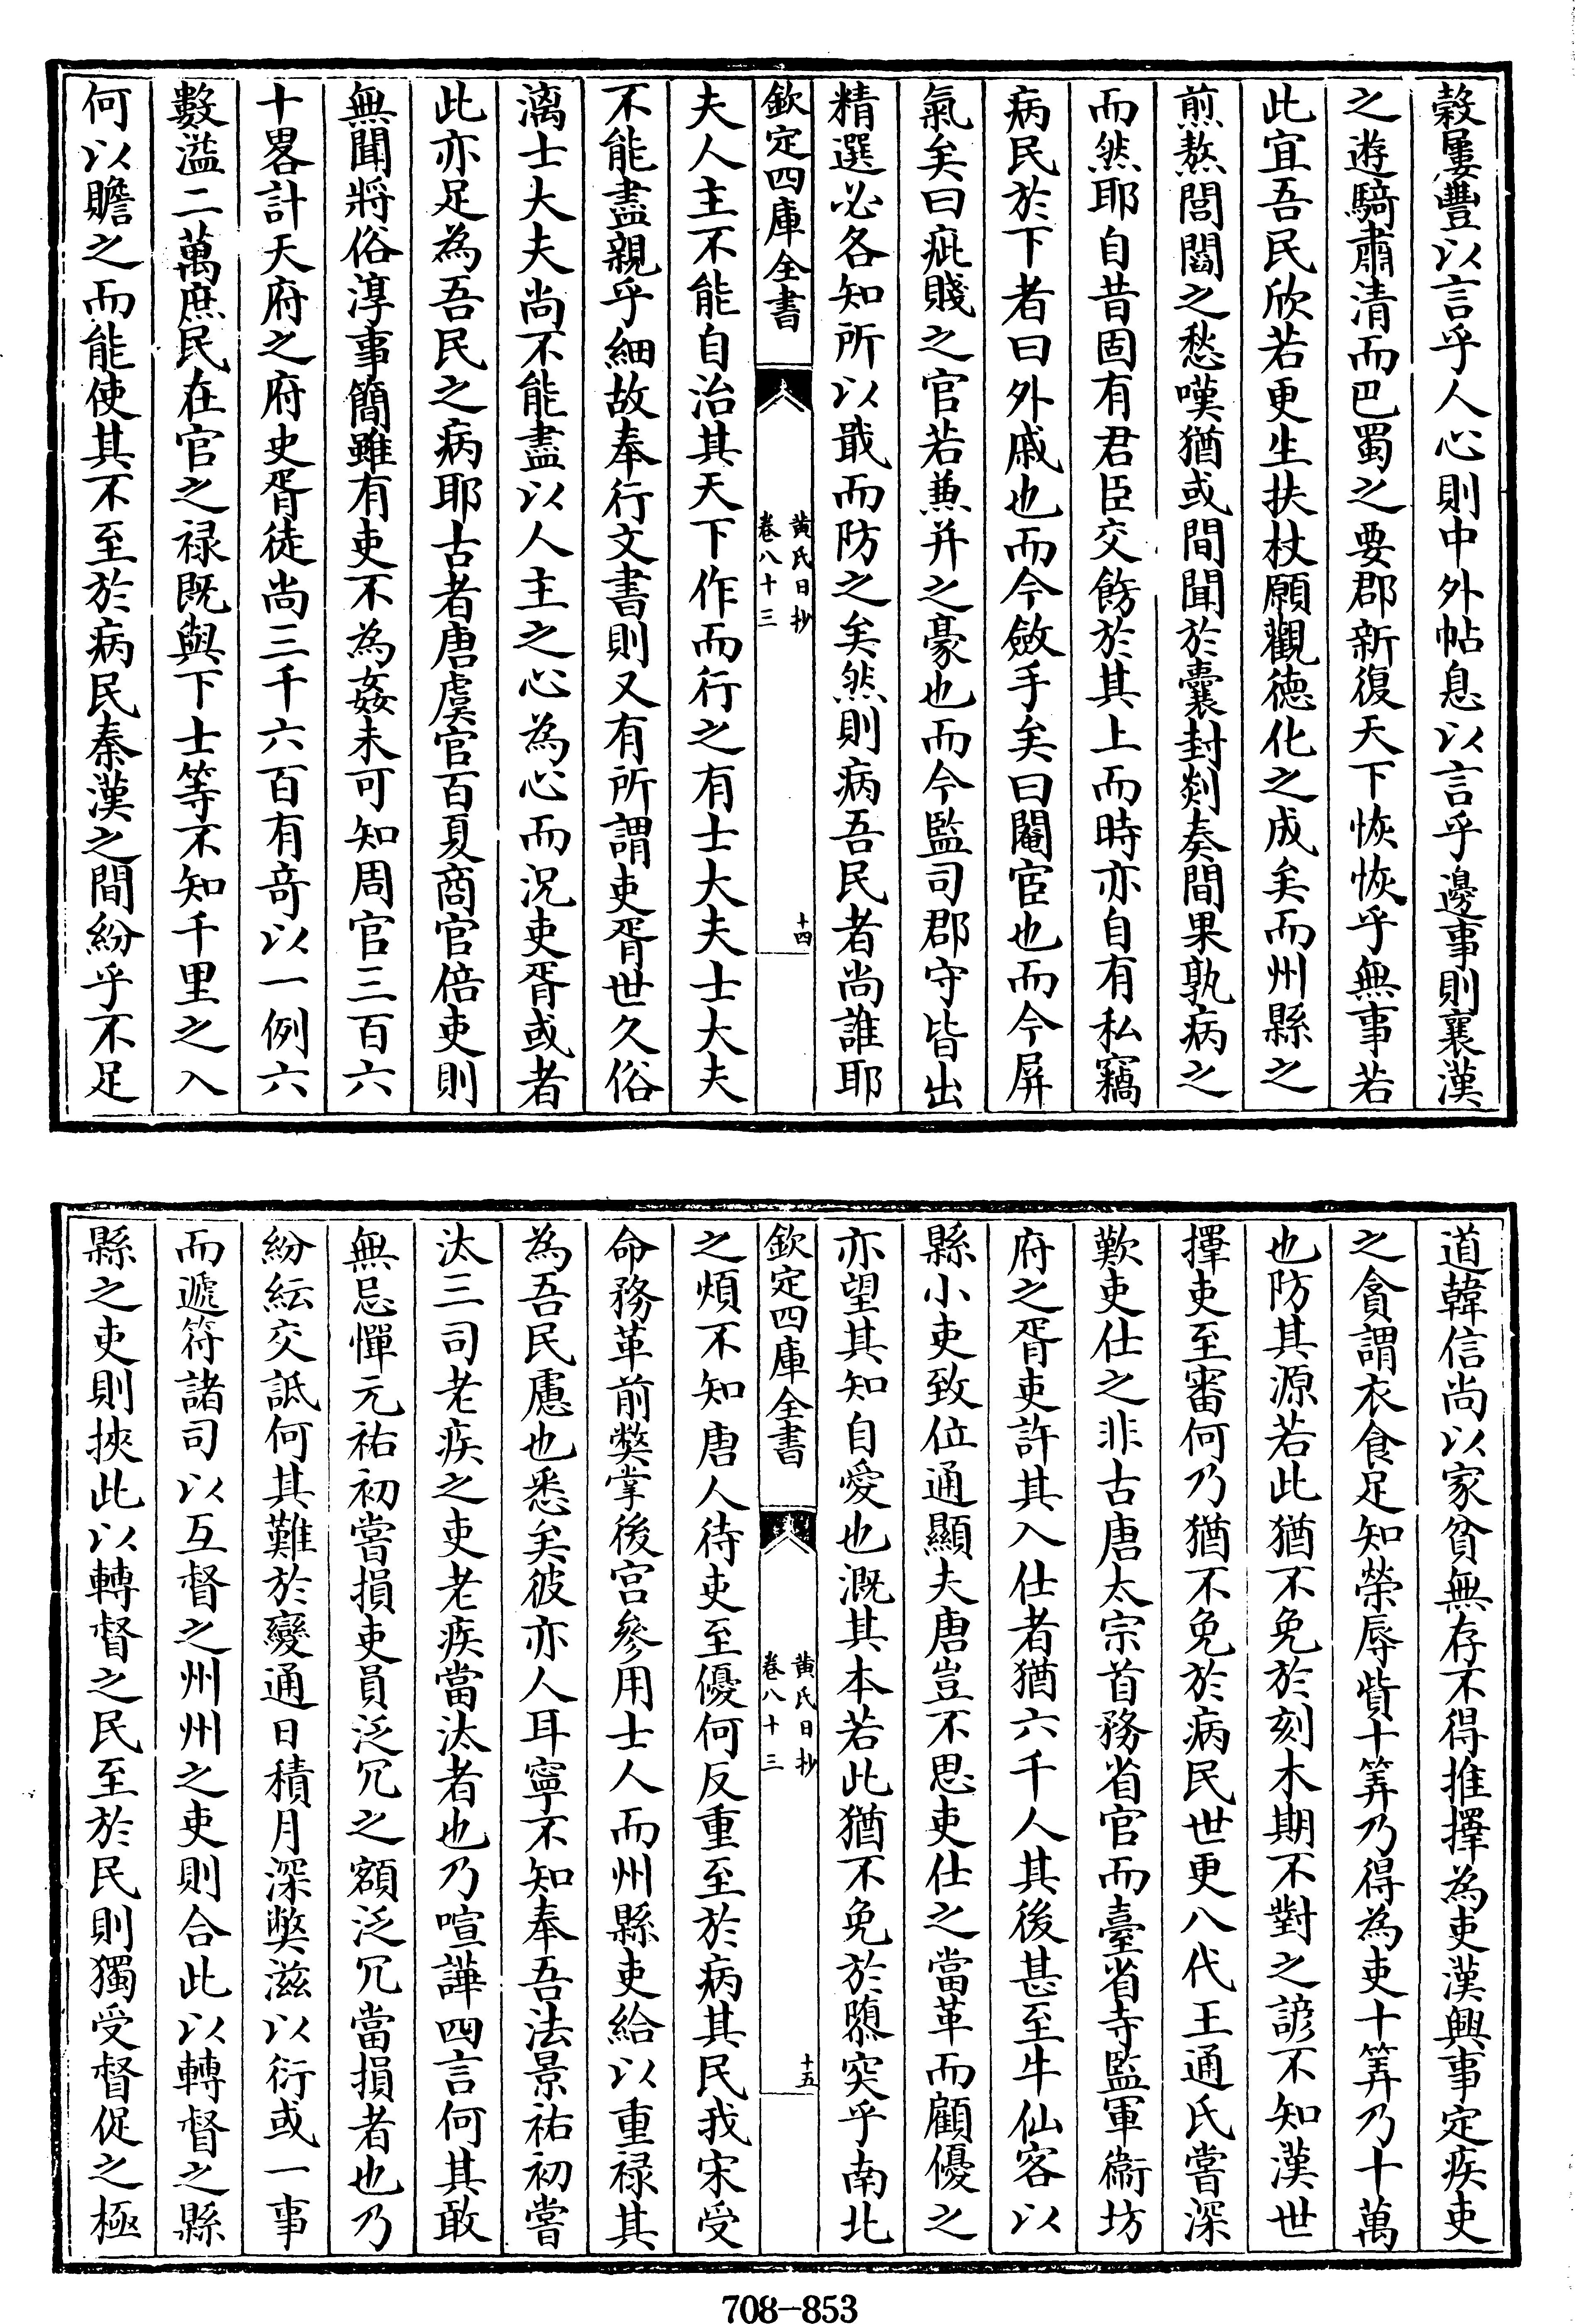 穀屢豐以言乎人心則中外帖息以言乎邊事則襄漢
之遊騎肅清而巴蜀之要郡新復天下恢恢乎無事若
此宜吾民欣若更生扶杖願觀德化之成矣而州縣之
煎熬閭閻之愁嘆猶或間聞於囊封剡奏間果孰病之
而然耶自昔固有君臣交飭於其上而時亦自有私竊
病民於下者曰外戚也而今斂手矣曰閹宦也而今屏
氣矣曰疵賤之官若兼并之豪也而今監司郡守皆出
精選必各知所以戢而防之矣然則病吾民者尚誰耶
欽定四庫全書
黄氏日抄
卷八十三
十四
夫人主不能自治其天下作而行之有士大夫士大夫
不能盡親乎細故奉行文書則又有所謂吏胥世久俗
漓士大夫尚不能盡以人主之心為心而況吏胥或者
此亦足為吾民之病耶古者唐虞官百夏商官倍吏則
無聞將俗淳事簡雖有吏不為姦未可知周官三百六
十畧計天府之府史胥徒尚三千六百有竒以一例六
數溢二萬庶民在官之禄既與下士等不知千里之入
何以贍之而能使其不至於病民秦漢之間紛乎不足
道韓信尚以家貧無存不得推擇為吏漢興事定疾吏
之貪謂衣食足知榮辱貲十筭乃得為吏十筭乃十萬
也防其源若此猶不免於刻木期不對之諺不知漢世
擇吏至審何乃猶不免於病民世更八代王通氏嘗深
歎吏仕之非古唐太宗首務省官而臺省寺監軍衞坊
府之胥吏許其入仕者猶六千人其後甚至牛仙客以
縣小吏致位通顯夫唐豈不思吏仕之當革而顧優之
亦望其知自愛也溉其本若此猶不免於隳突乎南北
欽定四庫全書
黄氏日抄
卷八十三
十五
之煩不知唐人待吏至優何反重至於病其民我宋受
命務革前弊掌後宫參用士人而州縣吏給以重禄其
為吾民慮也悉矣彼亦人耳寧不知奉吾法景祐初嘗
汰三司老疾之吏老疾當汰者也乃喧譁四言何其敢
無忌憚元祐初嘗損吏員泛冗之額泛冗當損者也乃
紛紜交詆何其難於變通日積月深弊滋以衍或一事
而遞符諸司以互督之州州之吏則合此以轉督之縣
縣之吏則挾此以轉督之民至於民則獨受督促之極
708-853